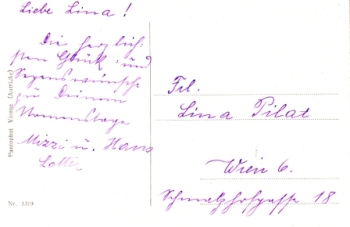 Liebe Lina!
Die herzlich-
sten Glück- und
Segenswünsche
zu Deinem
Namenstage
Mizzi u. Hans
Lotte
Frl.
Lina Pilat
Wien 6.
Schmalzhofgasse 18
Nr. 1319